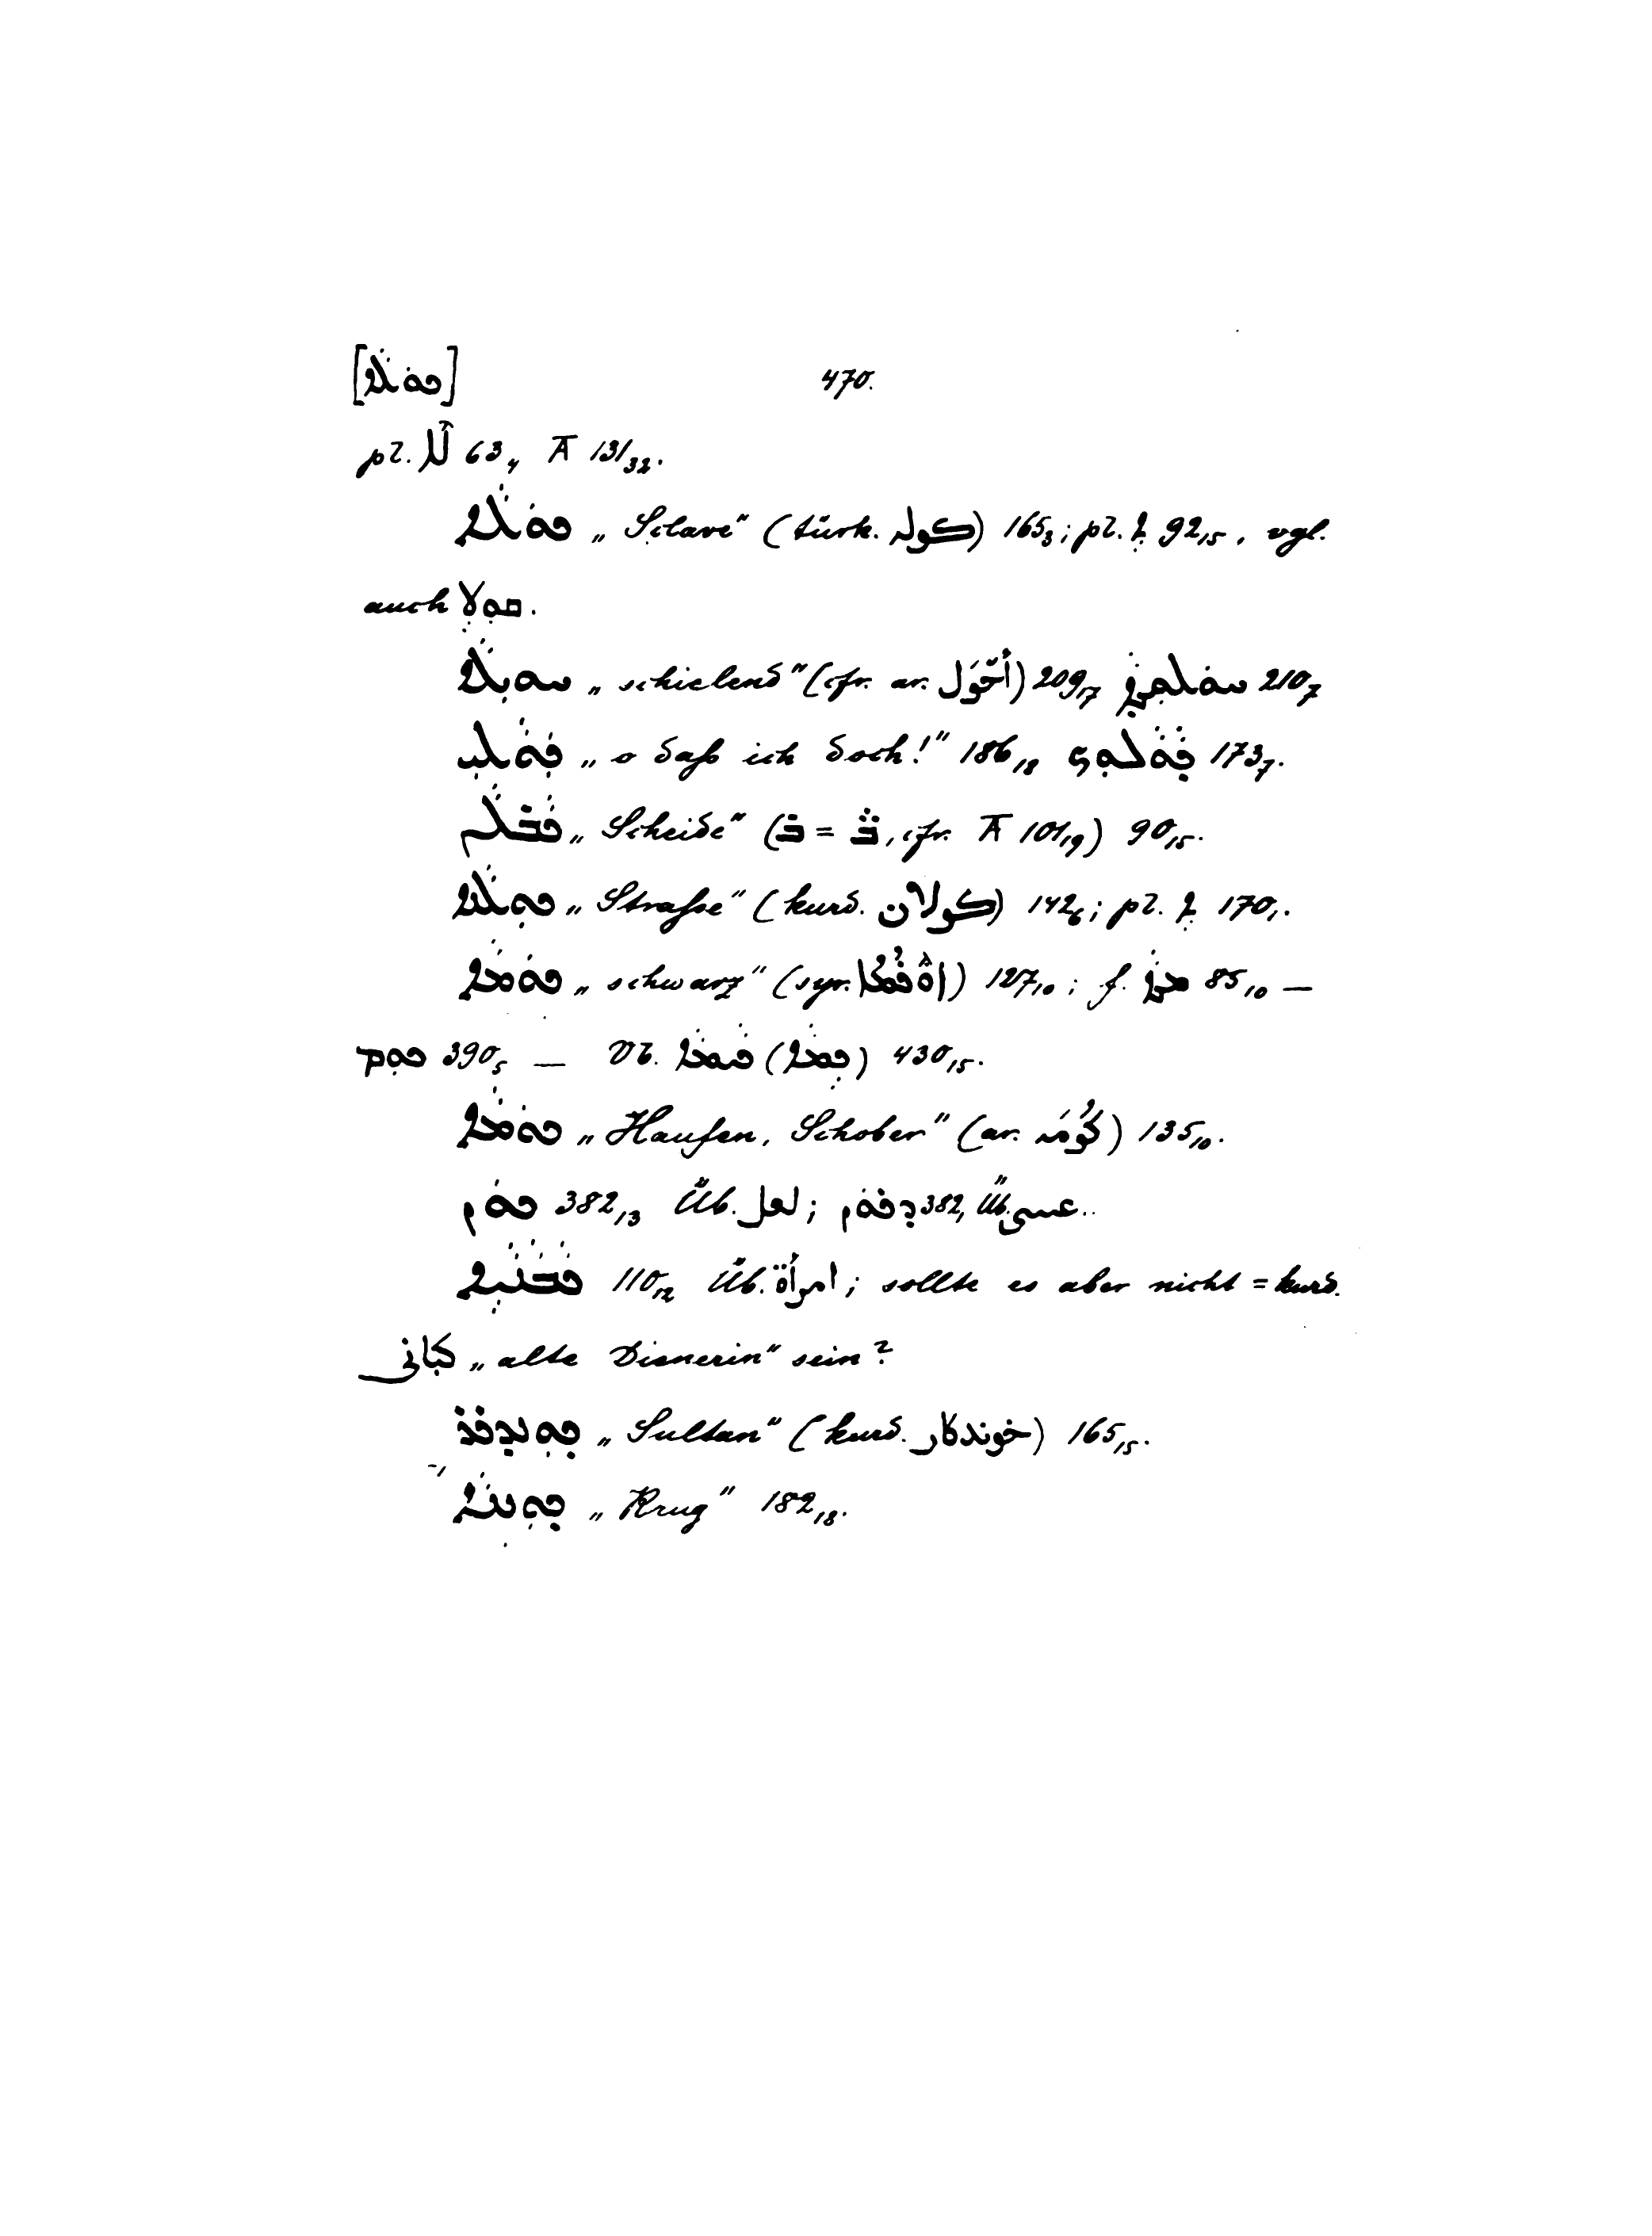 [ܟܘܠܐ] 470.
pl. 63,4 A 131,32.
ܟܘܠܐ „Sclave" (türk. كوله) 165,3; pl. 92,15, vgl.
auch ܩܘܠܐ.
„schielend" (cfr. ar. أَحْوَل) 209,17 210,7
„o daß ich doch!" 186,18 173,7.
„Scheide" (ܒ = ܒ, cfr. A 101,19) 90,15.
„Straße" (kurd. كولان) 142,6; pl. 170,1.
ܟܘܡܐ „schwarz" (syr. ܐܘܟܡܐ) 127,10; f. 85,10 —
ܟܘܡ 390,5 — Vb. 430,15.
ܟܘܡܐ „Haufen, Schober" (ar. كُومَه) 135,10.
ܟܘܢ 382,13 Üb. لعل; ܕܟܘܢ 382,1 Üb. عسى..
110,12 Üb. امرأة; sollte es aber nicht = kurd.
كبانى „alte Dienerin" sein?
ܟܘܢܕܟܪ „Sultan" (kurd. خوندكار) 165,15.
ܟܘܢܐ „Krug" 182,18.